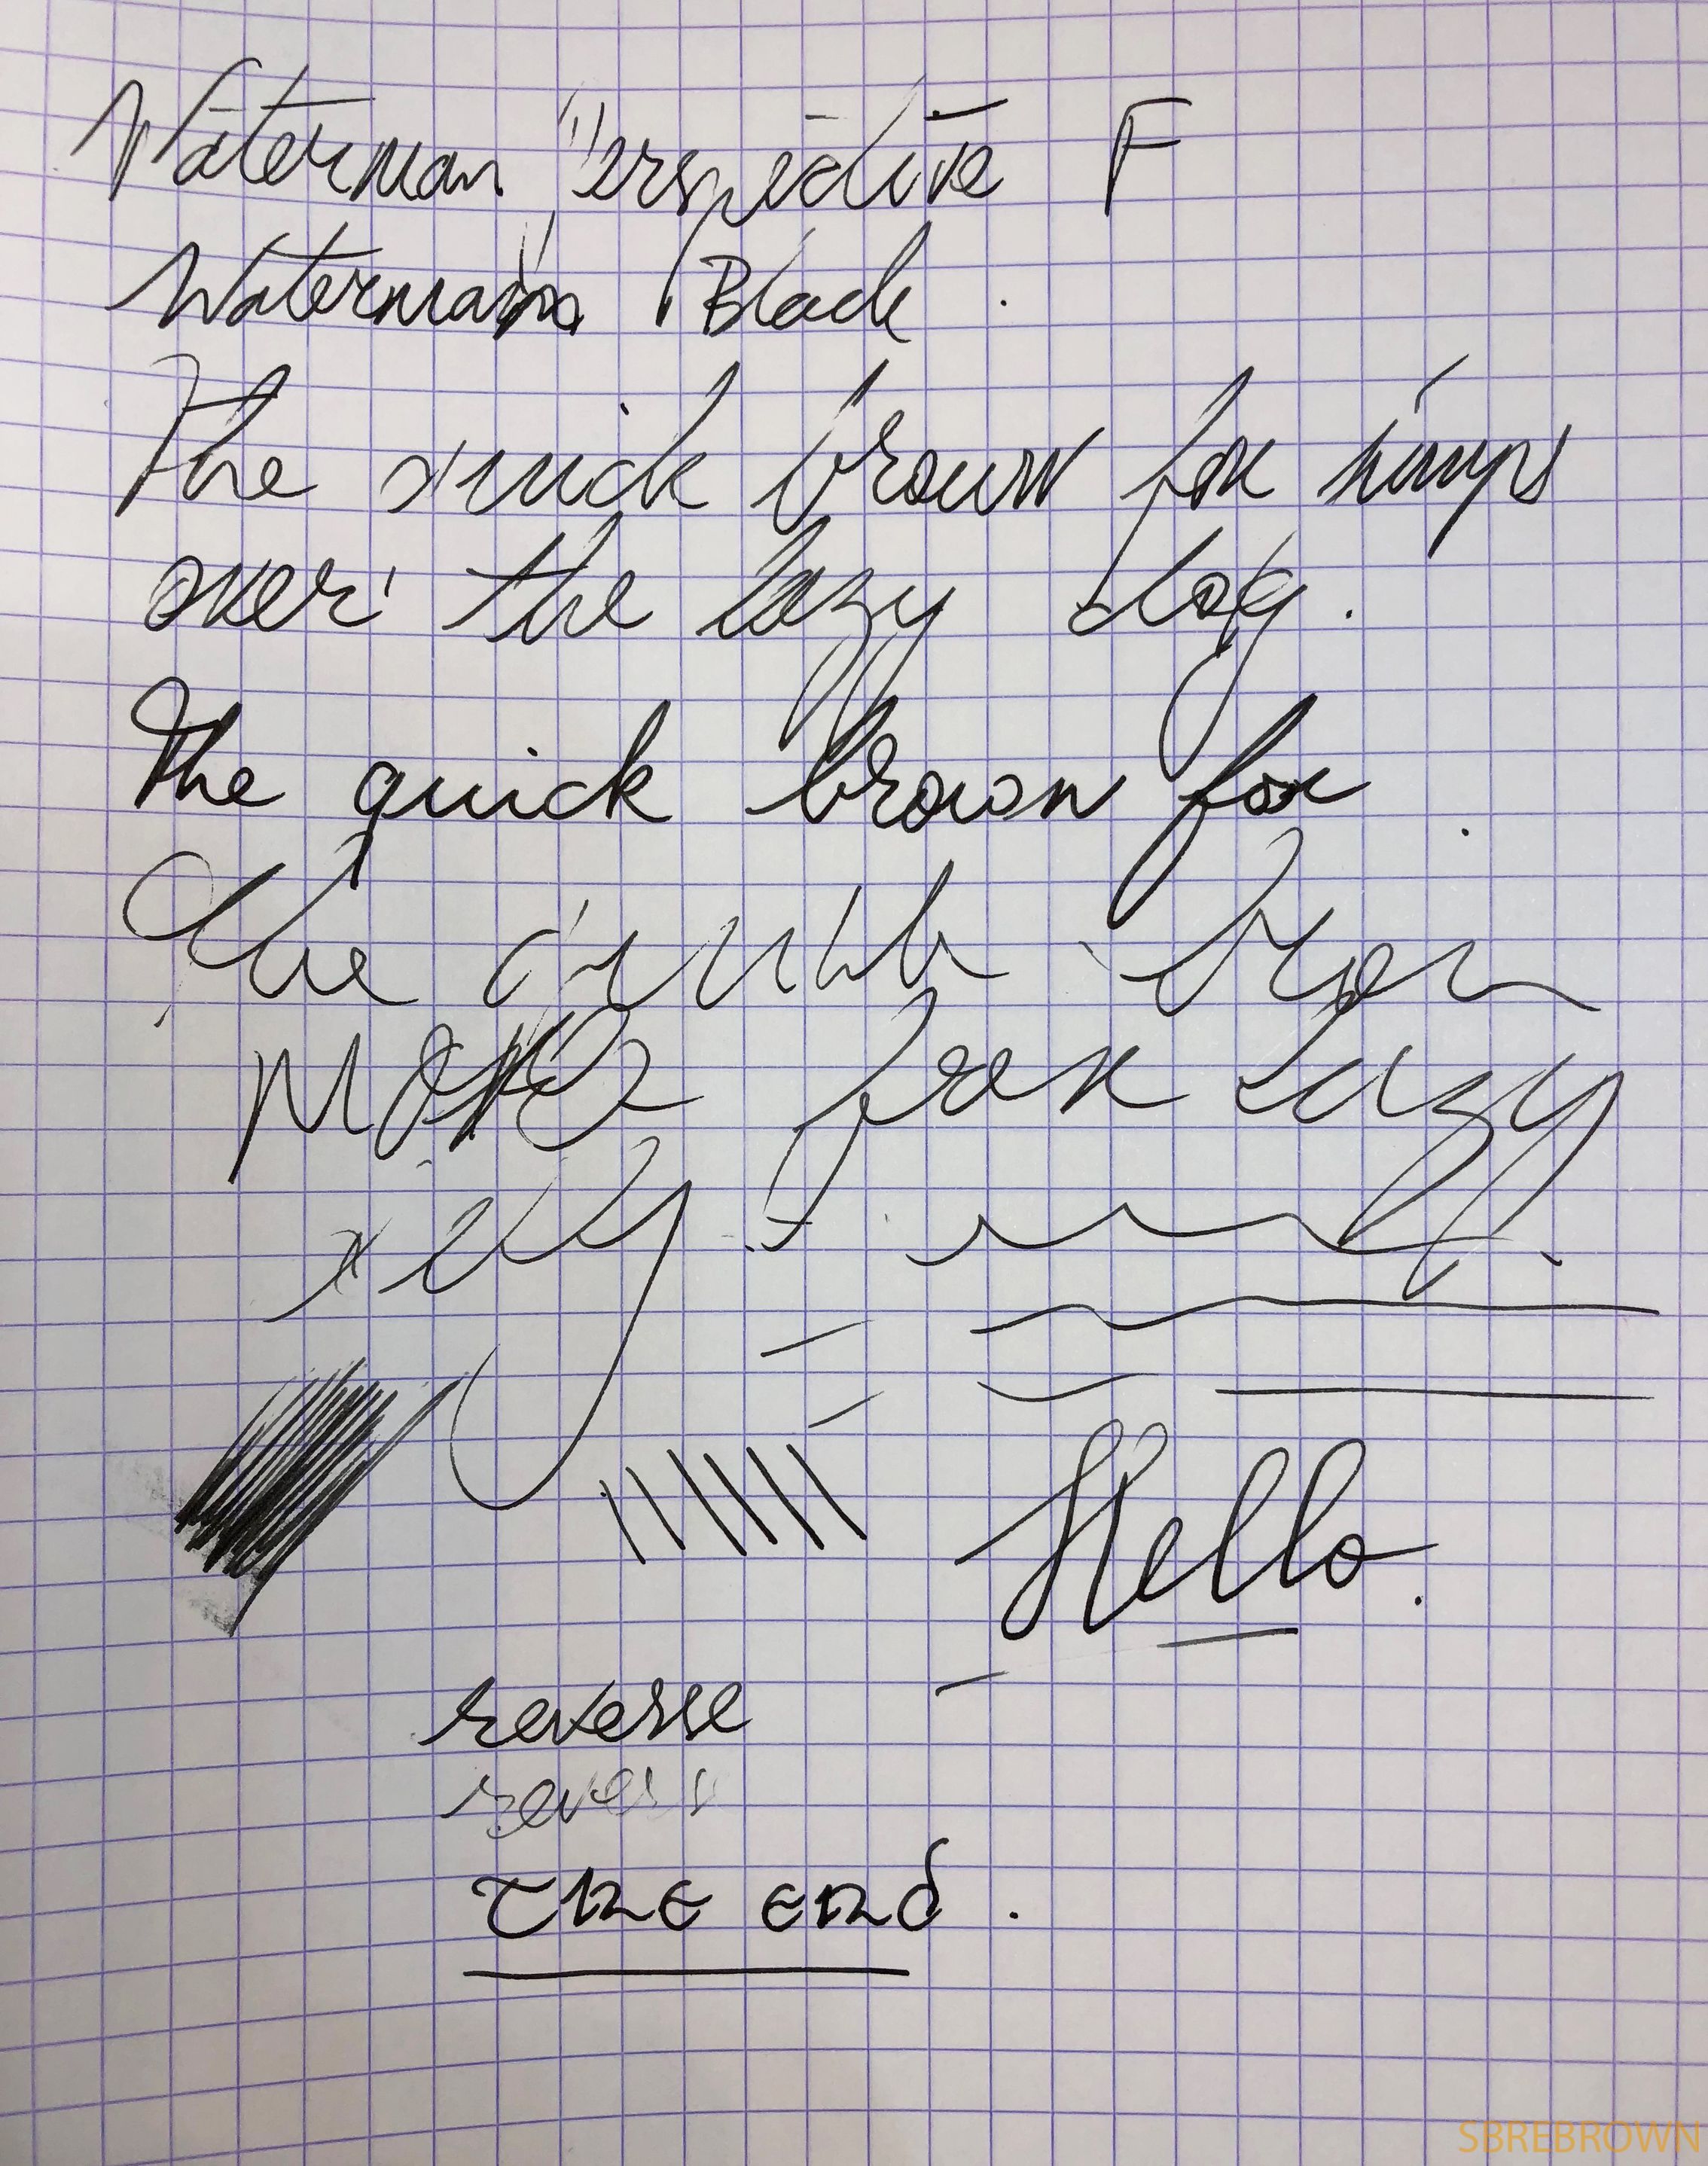 Waterman Perspective F
Waterman Black.
The quick brown fox jumps
over the lazy dog.
The quick brown fox
The
fox lazy
Hello.
reverse
revers
The end.
SBREBROWN